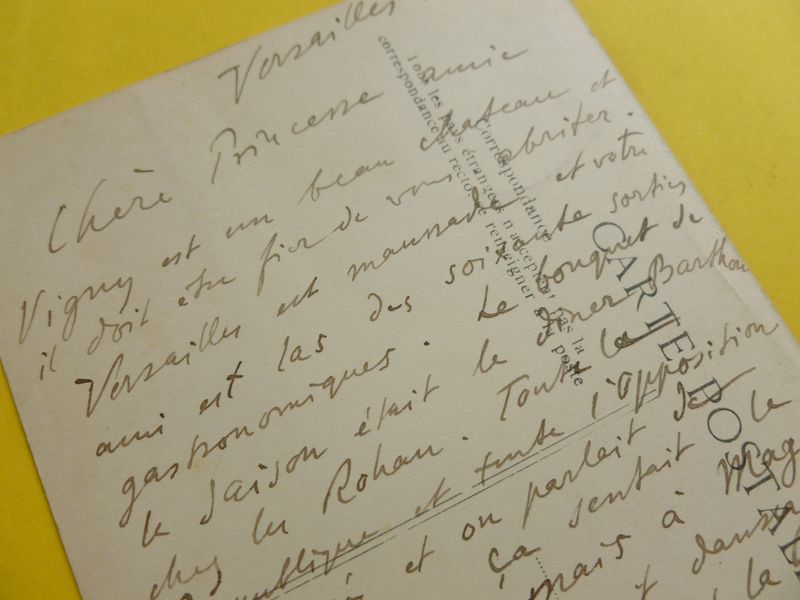 Versailles
Chère Princesse amie
Vigny est un beau chateau et
il doit être fier de vous abriter.
Versailles est maussade et votre
ami est las des soixante sorties
gastronomiques. Le bouquet de
la saison était le diner Barthou
chez les Rohan. Toute la
publique et toute l'opposition
et on parlait de
ça sentait le
mais à Mag
et danser
la
CARTE POSTALE
Tous les pays étrangers n'acceptent pas la
correspondance au recto, se renseigner à la poste
Correspondance